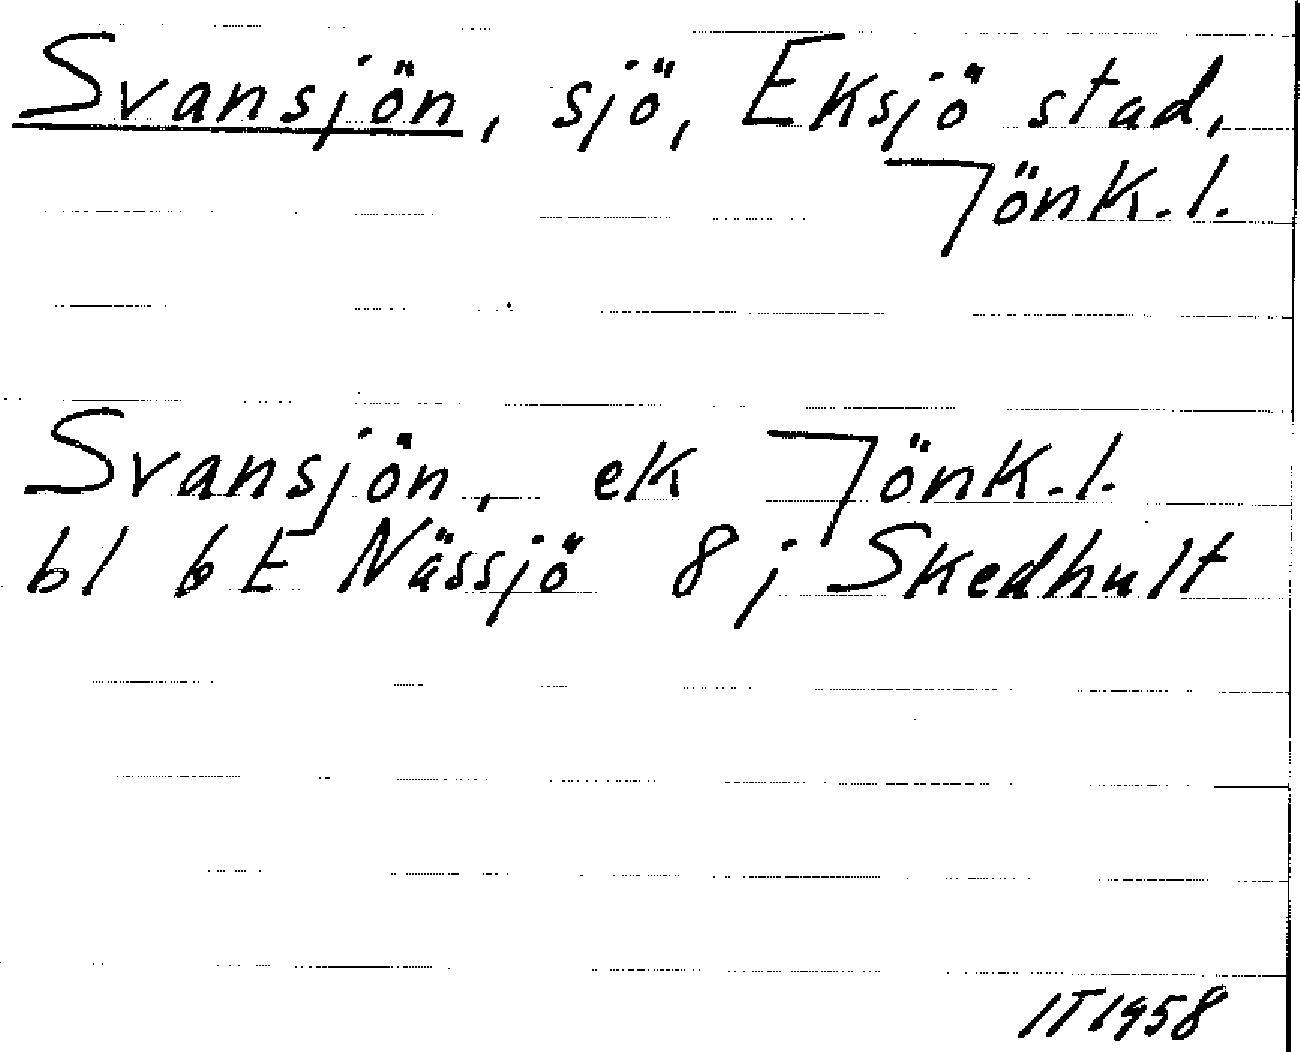 Svansjön, sjö, Eksjö stad,
Jönk.l.
Svansjön, ek Jönk.l.
bl 6E Nässjö 8j Skedhult
IT 1958